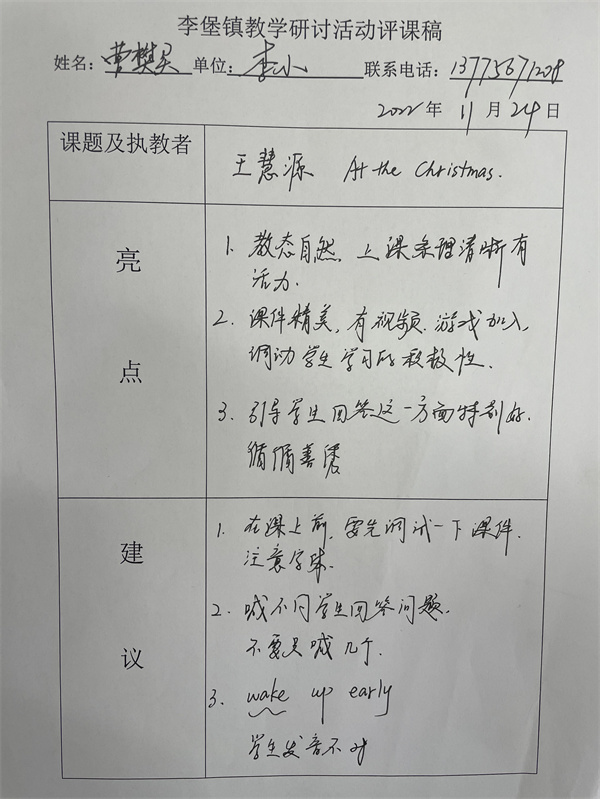 李堡镇教学研讨活动评课稿
姓名：曹樊昊 单位：李小 联系电话：13775671208
2022 年 11 月 24 日
课题及执教者
王慧源 At the Christmas.
亮点
1. 教态自然，上课条理清晰有
活力.
2. 课件精美，有视频.游戏加入，
调动学生学习的积极性.
3. 引导学生回答这一方面特别好.
循循善诱
建议
1. 在课上前，要先调试一下课件.
注意字体.
2. 喊不同学生回答问题，
不要只喊几个.
3. wake up early
学生发音不对